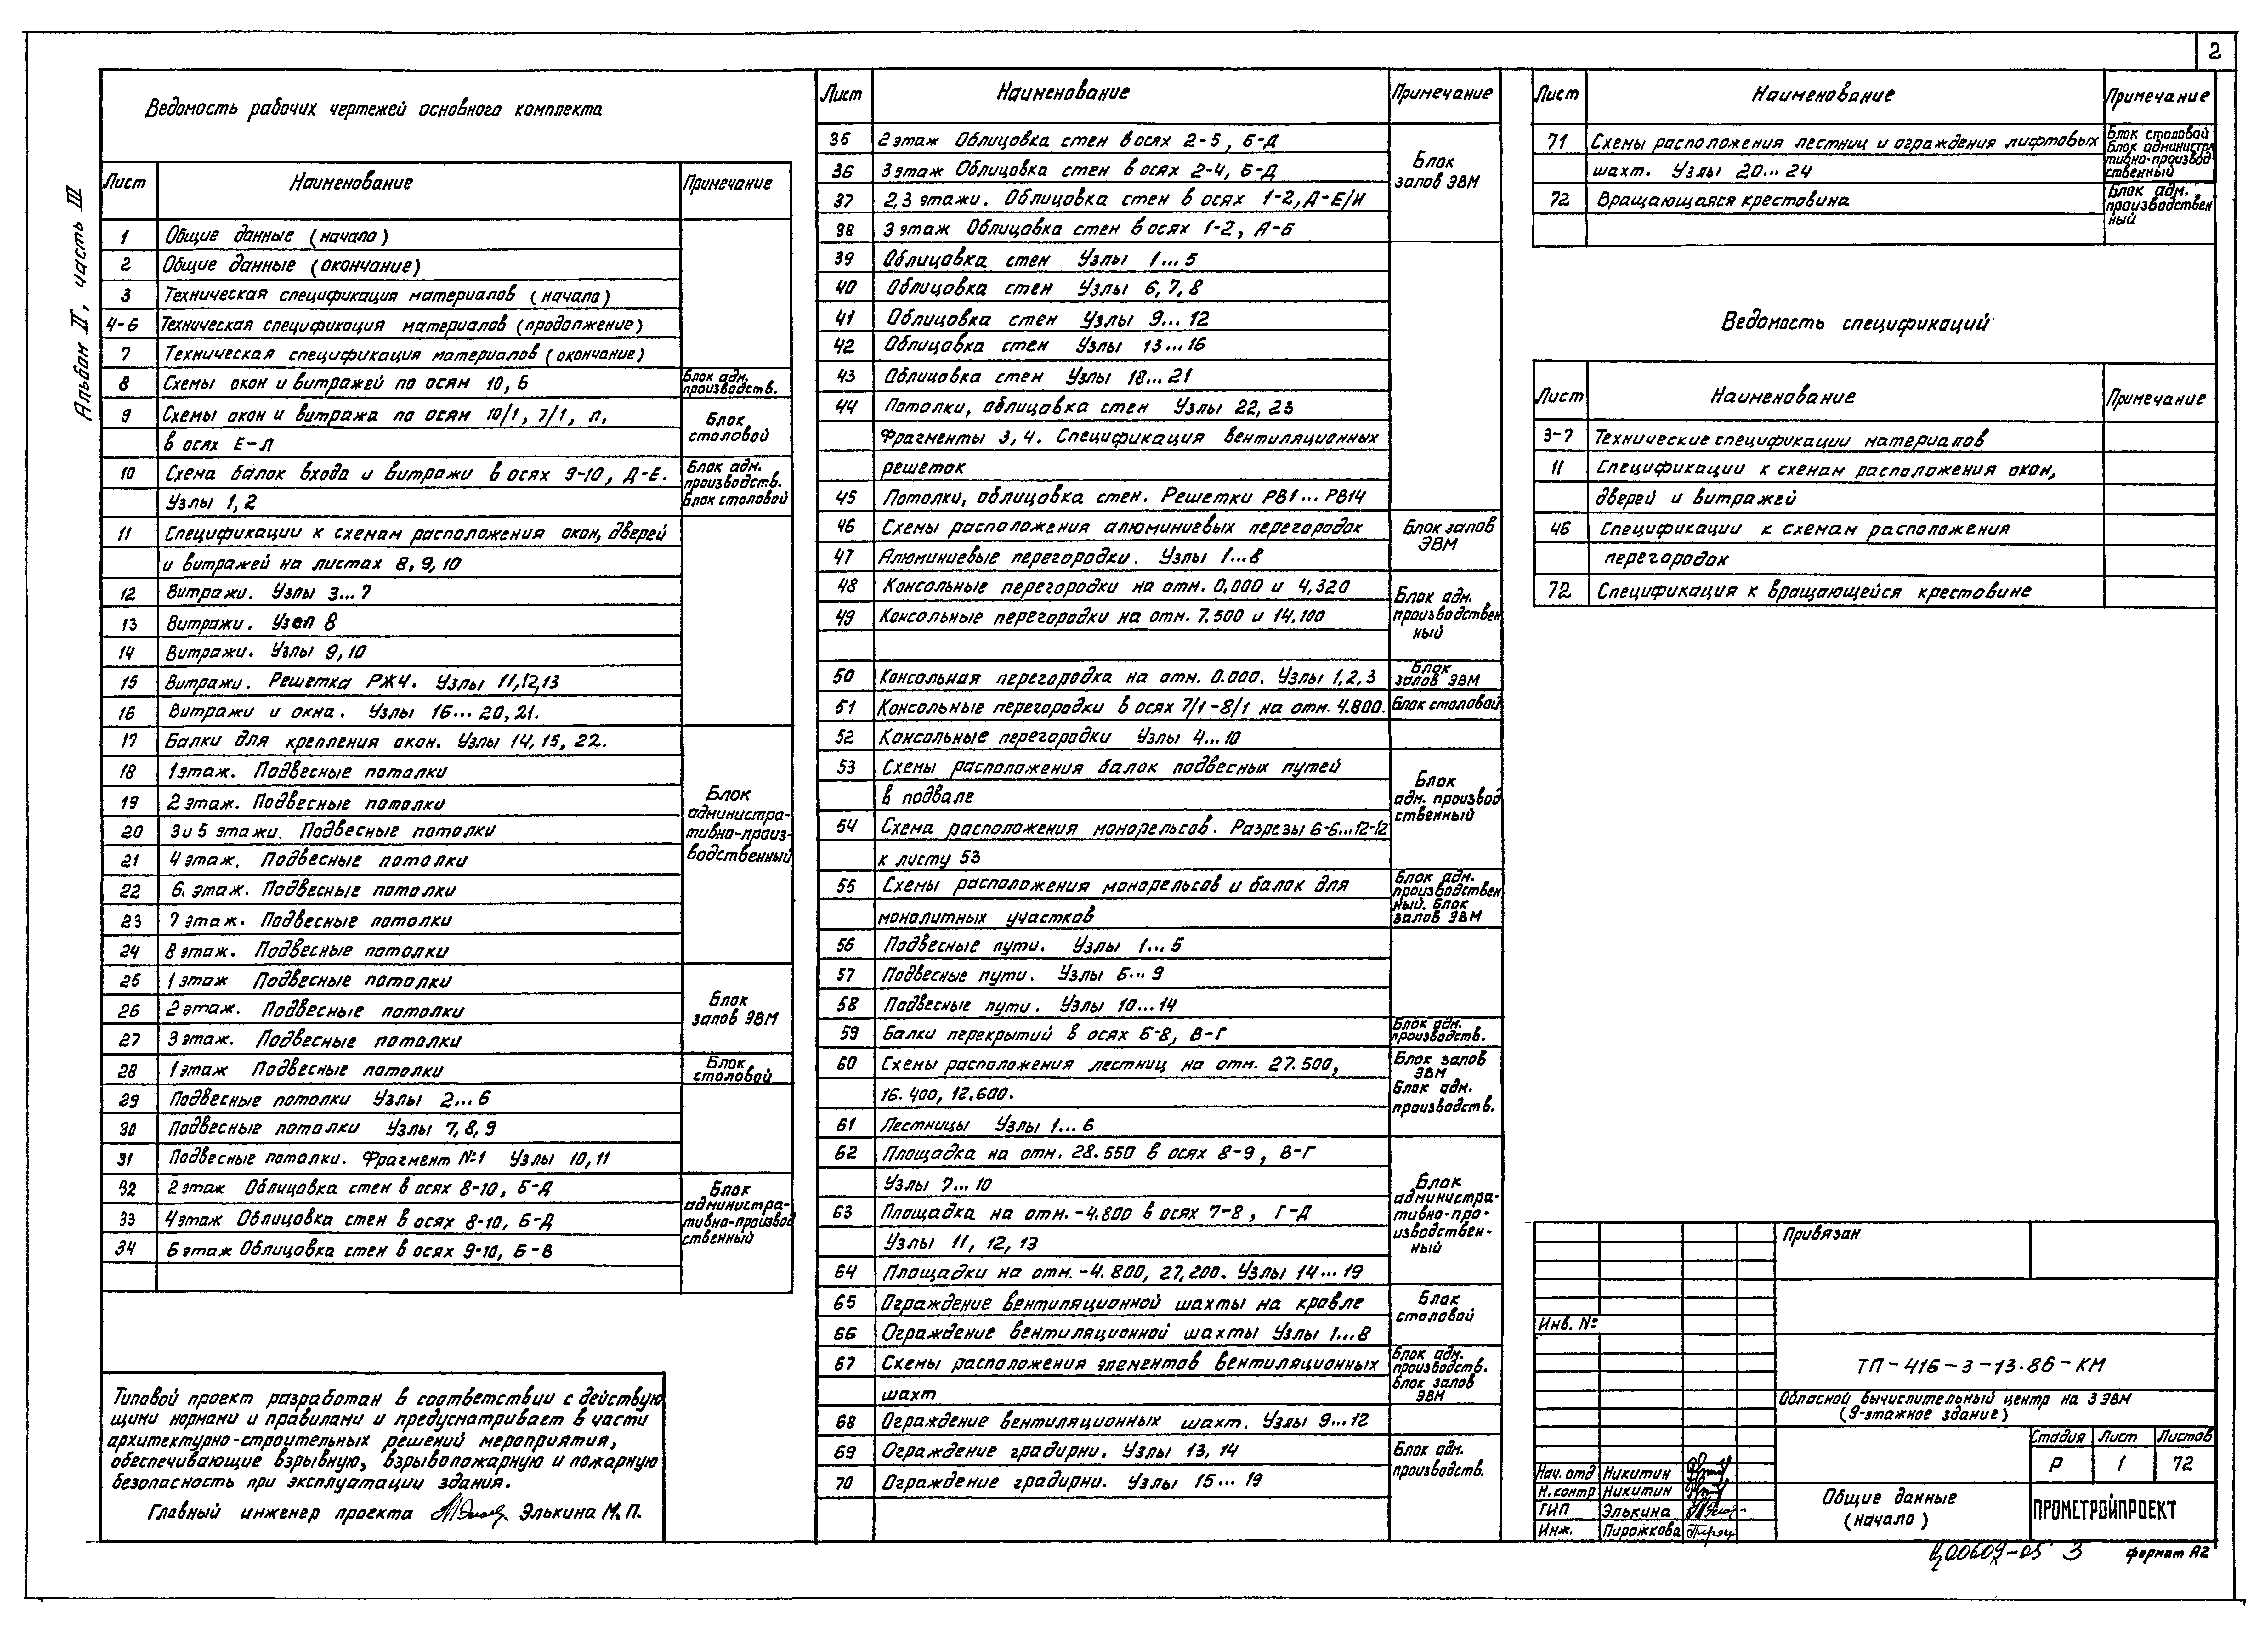 2
Альбом II, часть III
Ведомость рабочих чертежей основного комплекта
Лист Наименование Примечание
1 Общие данные (начало)
2 Общие данные (окончание)
3 Техническая спецификация материалов (начало)
4-6 Техническая спецификация материалов (продолжение)
7 Техническая спецификация материалов (окончание)
8 Схемы окон и витражей по осям 10, Б Блок адм. производств.
9 Схемы окон и витража по осям 10/1, 7/1, Л,
в осях Е-Л
Блок
столовой
10 Схема балок входа и витражи в осях 9-10, Д-Е.
Узлы 1, 2
Блок адм.
производств.
Блок столовой
11 Спецификации к схемам расположения окон, дверей
и витражей на листах 8, 9, 10
12 Витражи. Узлы 3...7
13 Витражи. Узел 8
14 Витражи. Узлы 9, 10
15 Витражи. Решетка РЖ4. Узлы 11,12,13
16 Витражи и окна. Узлы 16...20, 21.
17 Балки для крепления окон. Узлы 14, 15, 22.
18 1 этаж. Подвесные потолки
19 2 этаж. Подвесные потолки
20 3 и 5 этажи. Подвесные потолки
21 4 этаж. Подвесные потолки
22 6. этаж. Подвесные потолки
23 7 этаж. Подвесные потолки
24 8 этаж. Подвесные потолки
Блок
администра-
тивно-произ-
водственный
25 1 этаж Подвесные потолки
26 2 этаж. Подвесные потолки
27 3 этаж. Подвесные потолки
Блок
залов ЭВМ
28 1 этаж Подвесные потолки
Блок
столовой
29 Подвесные потолки Узлы 2...6
30 Подвесные потолки Узлы 7, 8, 9
31 Подвесные потолки. Фрагмент №1 Узлы 10, 11
32 2 этаж Облицовка стен в осях 8-10, Б-Д
33 4 этаж Облицовка стен в осях 8-10, Б-Д
34 6 этаж Облицовка стен в осях 9-10, Б-В
Блок
администра-
тивно-производ
ственный
Типовой проект разработан в соответствии с действую
щими нормами и правилами и предусматривает в части
архитектурно-строительных решений мероприятия,
обеспечивающие взрывную, взрывопожарную и пожарную
безопасность при эксплуатации здания.
Главный инженер проекта Элькина М.П.
Лист Наименование Примечание
35 2 этаж Облицовка стен в осях 2-5, Б-Д
36 3 этаж Облицовка стен в осях 2-4, Б-Д
37 2,3 этажи. Облицовка стен в осях 1-2, Д-Е/И
38 3 этаж Облицовка стен в осях 1-2, А-Б
Блок
залов ЭВМ
39 Облицовка стен Узлы 1...5
40 Облицовка стен Узлы 6, 7, 8
41 Облицовка стен Узлы 9...12
42 Облицовка стен Узлы 13...16
43 Облицовка стен Узлы 18...21
44 Потолки, облицовка стен Узлы 22, 23
Фрагменты 3, 4. Спецификация вентиляционных
решеток
45 Потолки, облицовка стен. Решетки РВ1...РВ14
46 Схемы расположения алюминиевых перегородок
47 Алюминиевые перегородки. Узлы 1...8
Блок залов
ЭВМ
48 Консольные перегородки на отм. 0,000 и 4,320
49 Консольные перегородки на отм. 7.500 и 14,100
Блок адм.
производствен
ный
50 Консольная перегородка на отм. 0.000. Узлы 1, 2, 3
Блок
залов ЭВМ
51 Консольные перегородки в осях 7/1-8/1 на отм. 4.800. Блок столовой
52 Консольные перегородки Узлы 4...10
53 Схемы расположения балок подвесных путей
в подвале
54 Схема расположения монорельсов. Разрезы 6-6...12-12
к листу 53
Блок
адм. производ
ственный
55 Схемы расположения монорельсов и балок для
монолитных участков
Блок адм.
производствен
ный. Блок
залов ЭВМ
56 Подвесные пути. Узлы 1...5
57 Подвесные пути. Узлы 6...9
58 Подвесные пути. Узлы 10...14
59 Балки перекрытий в осях 6-8, В-Г
Блок адм.
производств.
60 Схемы расположения лестниц на отм. 27.500,
16.400, 12.600.
61 Лестницы Узлы 1...6
Блок залов
ЭВМ
Блок адм.
производств.
62 Площадка на отм. 28.550 в осях 8-9, В-Г
Узлы 7...10
63 Площадка на отм. -4.800 в осях 7-8, Г-Д
Узлы 11, 12, 13
64 Площадки на отм. -4.800, 27,200. Узлы 14...19
Блок
администра-
тивно-про-
изводствен-
ный
65 Ограждение вентиляционной шахты на кровле
66 Ограждение вентиляционной шахты Узлы 1...8
Блок
столовой
67 Схемы расположения элементов вентиляционных
шахт
Блок адм.
производств.
Блок залов
ЭВМ
68 Ограждение вентиляционных шахт. Узлы 9...12
69 Ограждение градирни. Узлы 13, 14
70 Ограждение градирни. Узлы 15...19
Блок адм.
производств.
Лист Наименование Примечание
71 Схемы расположения лестниц и ограждения лифтовых
шахт. Узлы 20...24
Блок столовой
Блок администра
тивно-производ
ственный
72 Вращающаяся крестовина
Блок адм.
производствен
ный
Ведомость спецификаций
Лист Наименование Примечание
3-7 Технические спецификации материалов
11 Спецификации к схемам расположения окон,
дверей и витражей
46 Спецификации к схемам расположения
перегородок
72 Спецификация к вращающейся крестовине
Привязан
Инв. №
ТП-416-3-13.86-КМ
Обласной вычислительный центр на 3 ЭВМ
(9-этажное здание)
Стадия Лист Листов
Р 1 72
Нач. отд Никитин
Н. контр Никитин
ГИП Элькина
Инж. Пирожкова
Общие данные
(начало)
ПРОМСТРОЙПРОЕКТ
ц00609-05 3 формат А2